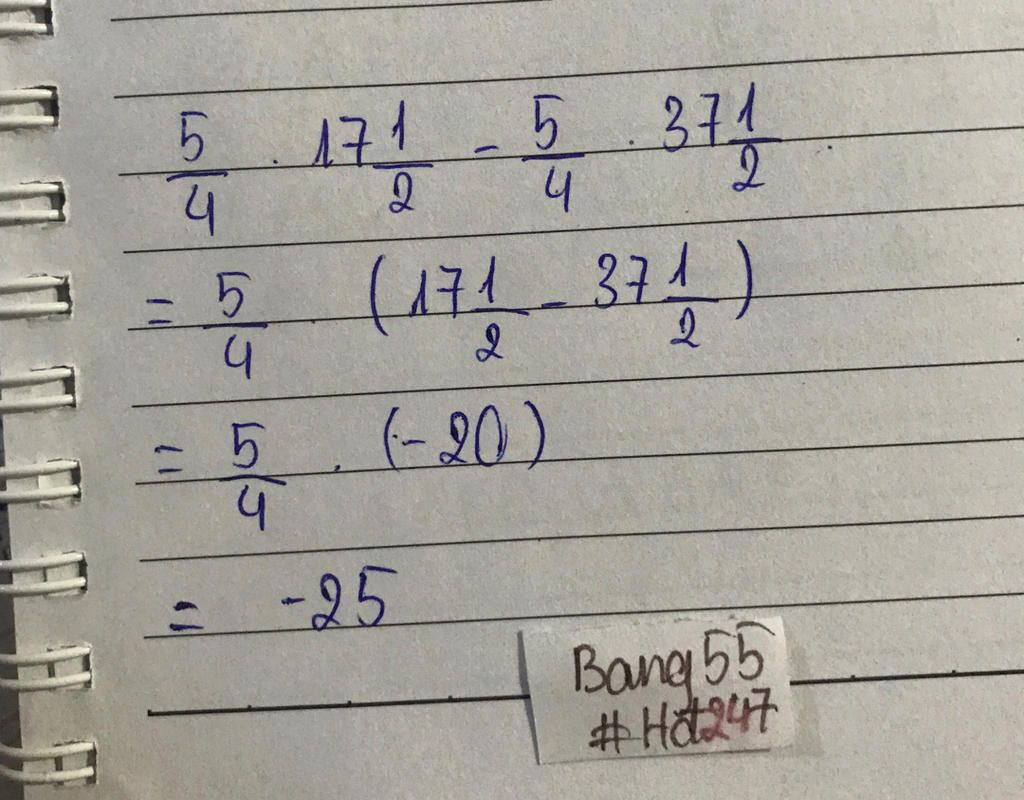 5/4 . 17 1/2 - 5/4 . 37 1/2
= 5/4 . (17 1/2 - 37 1/2)
= 5/4 . (-20)
= -25
Bang55
#Hot247